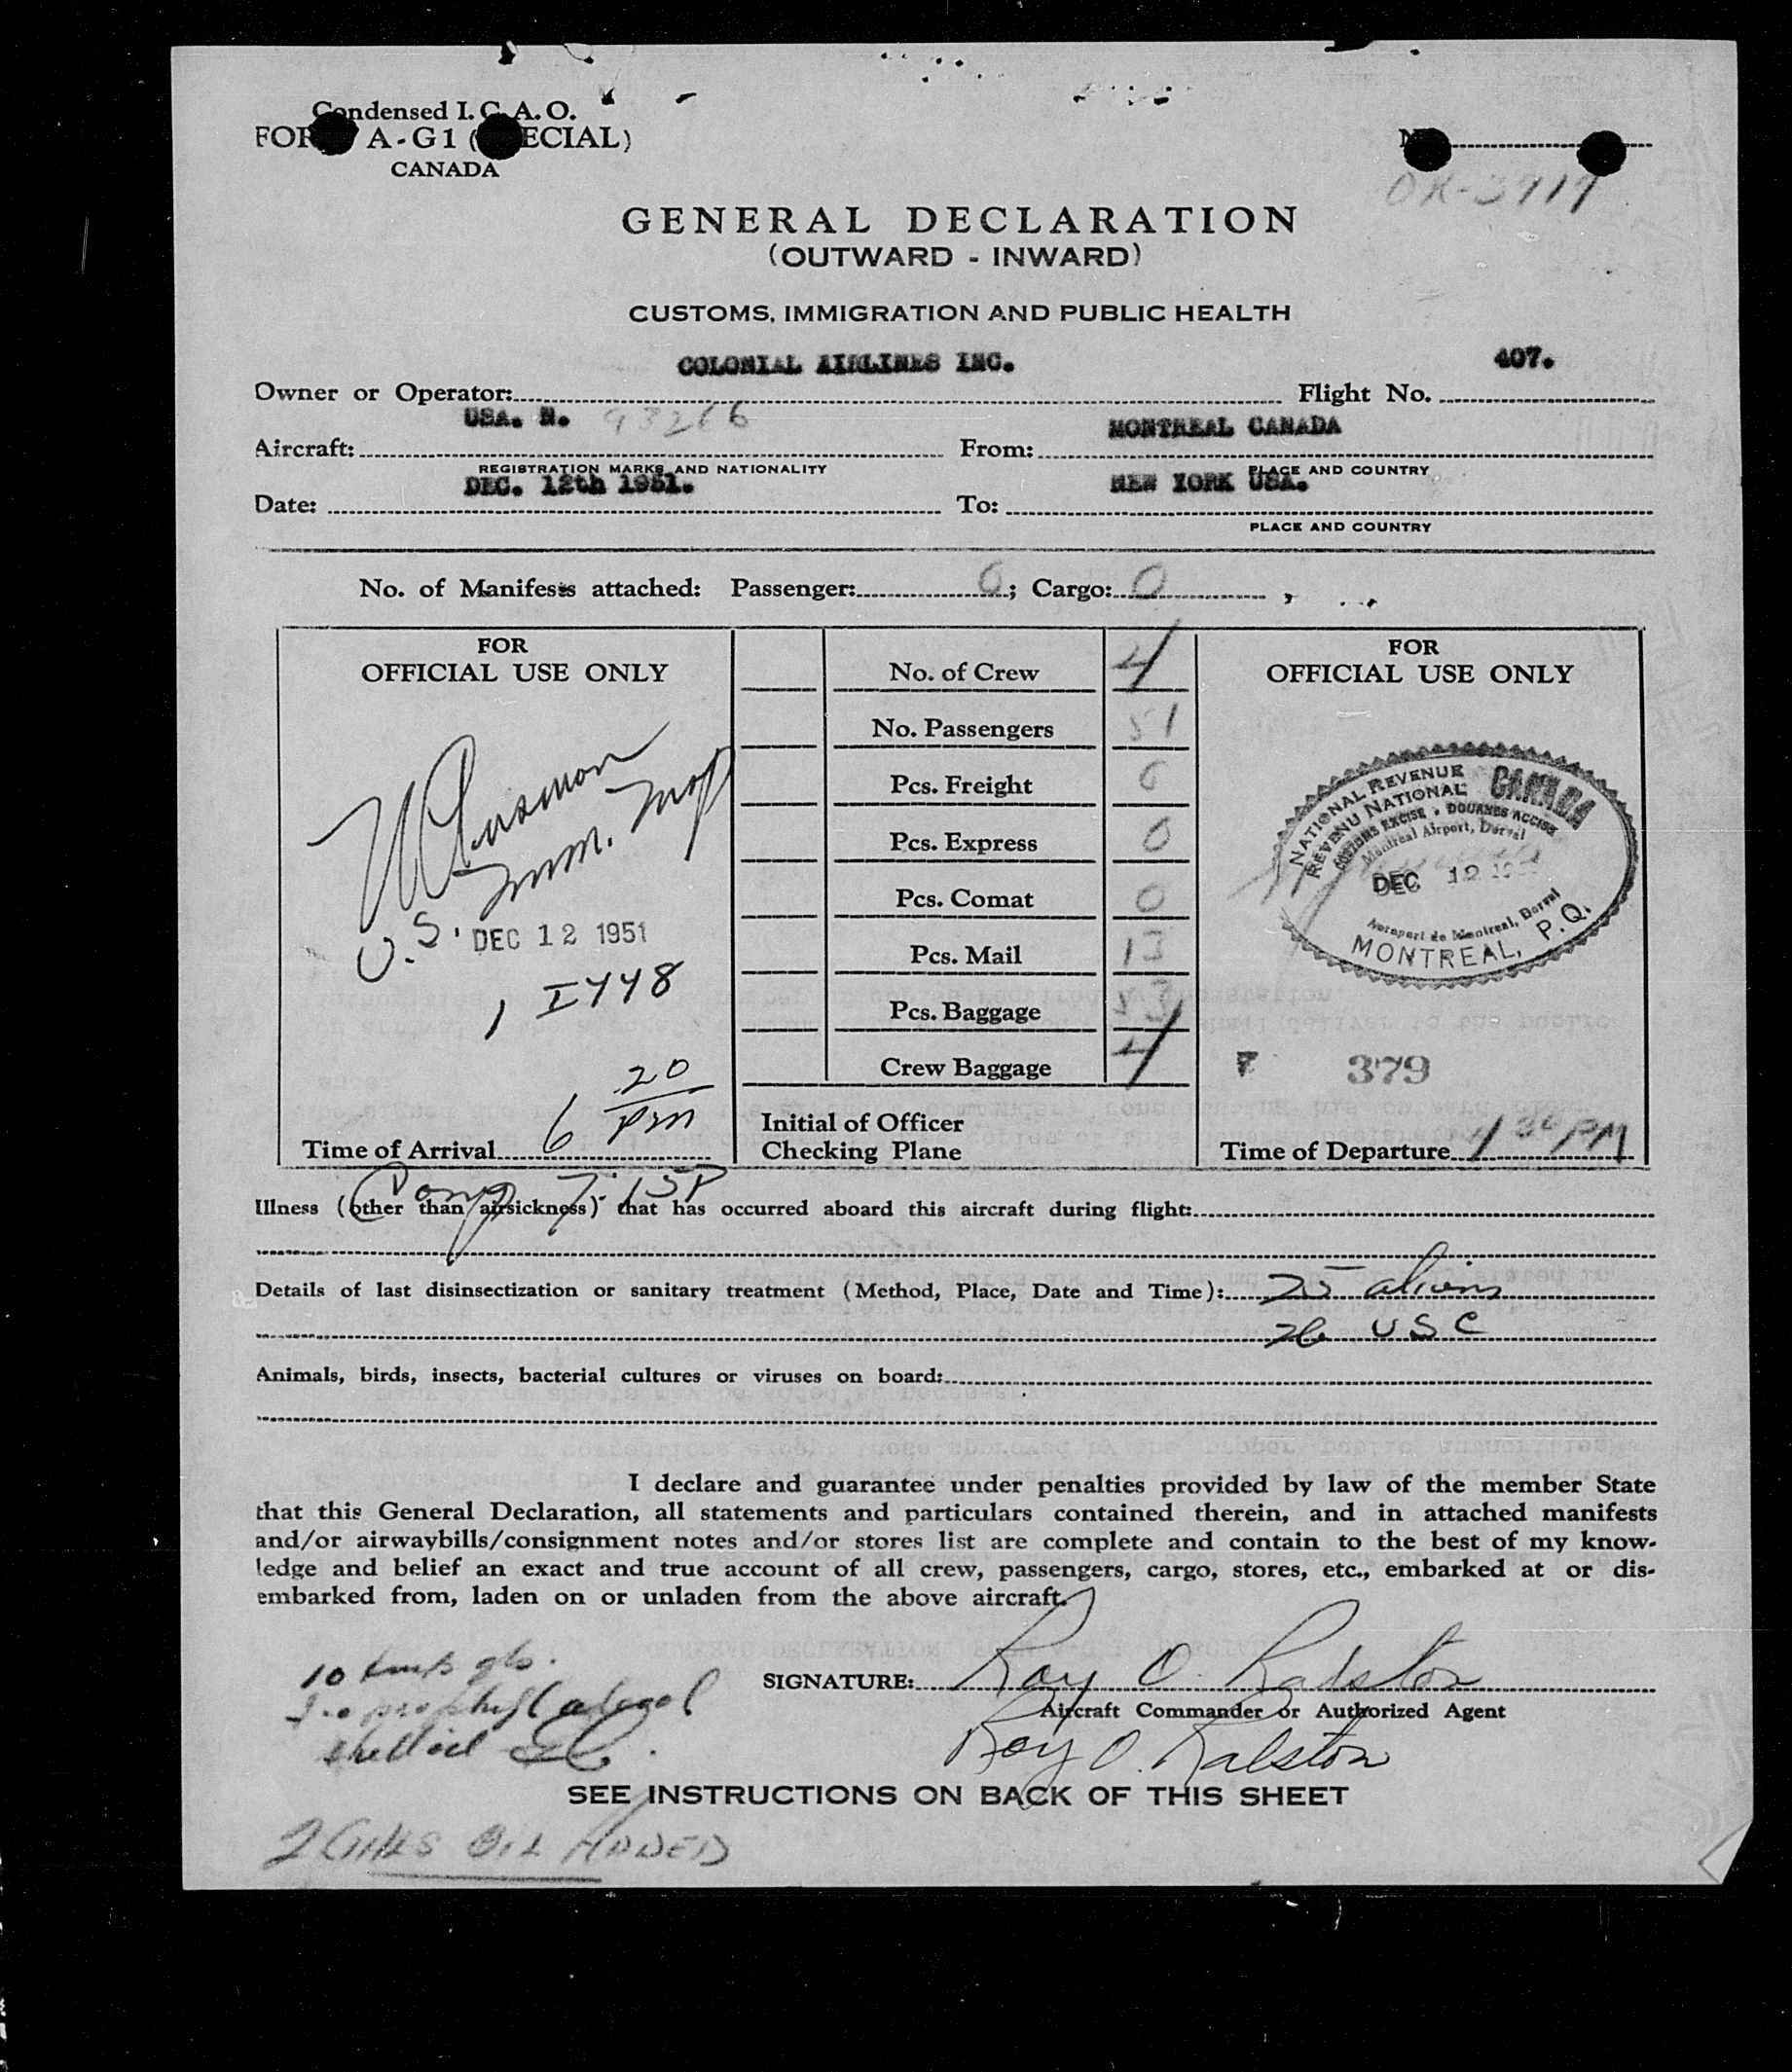 Condensed I.C.A.O.
FORM A-G1 (SPECIAL)
CANADA
GENERAL DECLARATION
(OUTWARD - INWARD)
CUSTOMS, IMMIGRATION AND PUBLIC HEALTH
COLONIAL AIRLINES INC. 407.
Owner or Operator: Flight No.
USA. N. 93266 MONTREAL CANADA
Aircraft: From:
REGISTRATION MARKS AND NATIONALITY PLACE AND COUNTRY
DEC. 12th 1951. NEW YORK USA.
Date: To:
PLACE AND COUNTRY
No. of Manifests attached: Passenger: 0; Cargo: 0
FOR
OFFICIAL USE ONLY
U.S. Imm. Insp
DEC 12 1951
I 448
6 20 pm
Time of Arrival
No. of Crew 4
No. Passengers 51
Pcs. Freight 0
Pcs. Express 0
Pcs. Comat 0
Pcs. Mail 13
Pcs. Baggage 53
Crew Baggage 4
Initial of Officer
Checking Plane
FOR
OFFICIAL USE ONLY
NATIONAL REVENUE CANADA
REVENU NATIONAL
CUSTOMS EXCISE • DOUANES ACCISE
Montreal Airport, Dorval
DEC 12
Aeroport de Montreal, Dorval
MONTREAL, P.Q.
379
Time of Departure 4 30 PM
Illness (other than airsickness) that has occurred aboard this aircraft during flight:
Details of last disinsectization or sanitary treatment (Method, Place, Date and Time): 25 aliens
26 USC
Animals, birds, insects, bacterial cultures or viruses on board:
I declare and guarantee under penalties provided by law of the member State
that this General Declaration, all statements and particulars contained therein, and in attached manifests
and/or airwaybills/consignment notes and/or stores list are complete and contain to the best of my know-
ledge and belief an exact and true account of all crew, passengers, cargo, stores, etc., embarked at or dis-
embarked from, laden on or unladen from the above aircraft.
SIGNATURE: Roy O. Ralston
Aircraft Commander or Authorized Agent
Roy O. Ralston
SEE INSTRUCTIONS ON BACK OF THIS SHEET
OIL ADDED